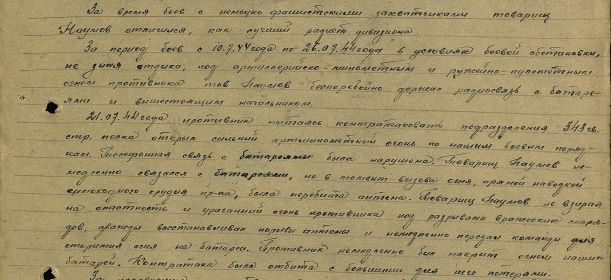 За время боев с немецко-фашистскими захватчиками товарищ
Наумов отличился, как лучший радист дивизиона.
За период боев с 10.7.44 года по 26.07.44 года в условиях боевой обстановки,
не зная отдыха, под артиллерийско-минометным и ружейно-пулеметным
огнем противника тов Наумов бесперебойно держал радиосвязь с батаре-
ями и вышестоящим начальником.
21.07.44 года противник пытаясь контратаковать подразделения 343 св.
стр. полка открыл сильный артминометный огонь по нашим боевым поряд-
кам. Телефонная связь с батареями была нарушена. Товарищ Наумов не-
медленно связался с батареями, но в момент вызова огня, прямой наводкой
самоходного орудия пр-ка, была перебита антена. Товарищ Наумов не взирая
на опастность и ураганный огонь противника под разрывами вражеских снаря-
дов, дважды восстанавливал порывы антены и немедленно передал команды для
открытия огня на батареи. Противник немедленно был накрыт огнем наших
батарей. Контратака была отбита с большими для него потерями.
За